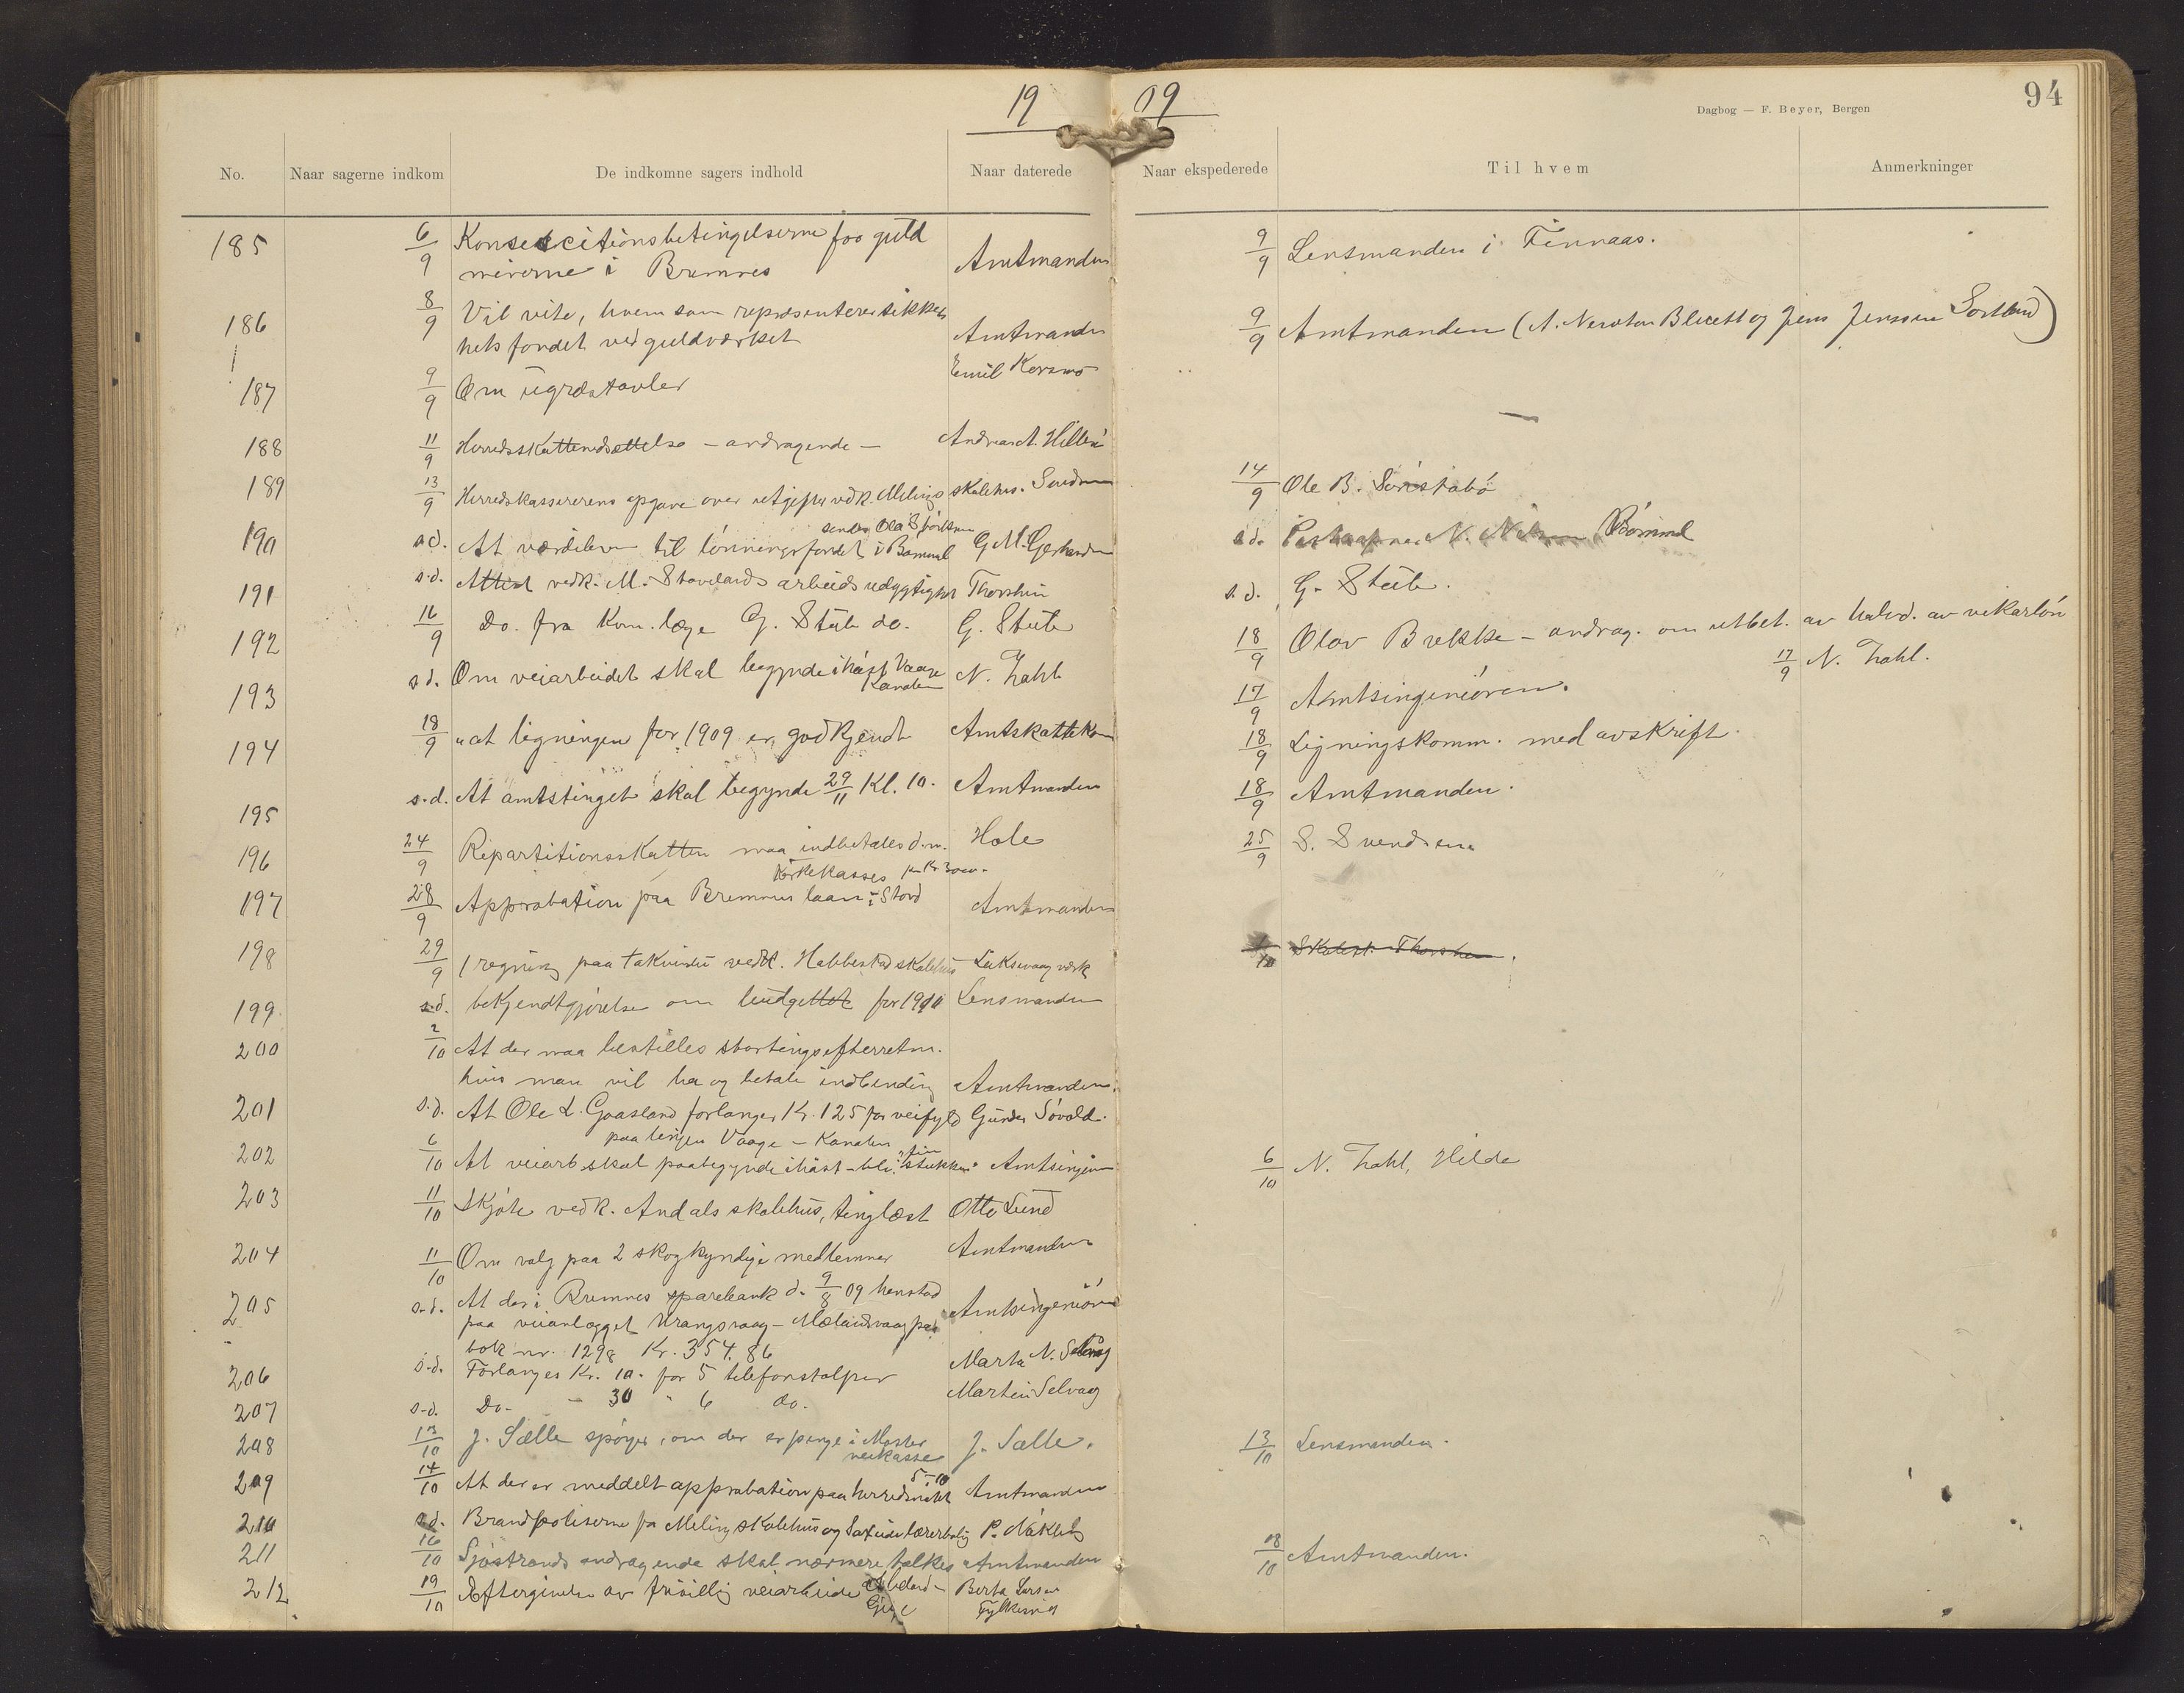 19 09
Dagbog — F. Beyer, Bergen
94
No. Naar sagerne indkom De indkomne sagers indhold Naar daterede Naar ekspederede Til hvem Anmerkninger
185 6/9 guld
minerne i Bremnes Amtmanden 9/9 Lensmanden i Finnaas.
186 8/9 Vil vite, hvem som repræsenterer sikker
hets fondet ved guldværket Amtmanden 9/9 Amtmanden (A. Newton og Jens Jensen
187 9/9 Om ugræstavler Emil Korsmo
188 11/9 Herredsskattenedsættelse – andragende –
189 13/9 Herredskassererens opgave over utgifter vedk. Melings skolehus. 14/9 Ole B.
190 s.d. At værdileren til lönningsfondet i Bömmel sendes Ola G. M. s.d. Bömmel
191 s.d. Attest vedk. M. arbeids udygtighet s.d. G. Stub.
192 16/9 Do. fra Kom. læge G. Stub do. G. Stub 18/9 Olav Brekke – andrag. om utbet. av halvd. av vikarlön
193 s.d. Om veiarbeidet skal begynde i höst Vaage
Kanalen N. Zahl 17/9 Amtsingeniören. 17/9 N. Zahl.
194 18/9 at ligningen for 1909 er godkjendt Amtskattekom 18/9 Ligningskomm. med avskrift.
195 s.d. At amtstinget skal begynde 29/11 Kl. 10. Amtmanden 18/9 Amtmanden.
196 24/9 Repartitionsskatten maa indbetales d.m. Hole 25/9 S. Svendsen
197 28/9 Approbation paa Bremnes laan i Stord
Kirkekasses Amtmanden
198 29/9 1 regning paa takvindu vedk. Habbestad skolehus Laksevaag værk 1/10 Skolest.
199 s.d. bekjendtgjörelse om budgettet for 1910 Lensmanden
200 2/10 At der maa bestilles stortingsefterretn.
hvis man vil ha og betale indbinding Amtmanden.
201 s.d. At Ole L. Gaasland forlanger Kr. 125 for veifyld
paa linjen Vaage – Kanalen
202 6/10 At veiarb. skal paabegynde i höst – Amtsingen 6/10 N. Zahl, Hilde
203 11/10 Skjöte vedk. Andals skolehus, tinglæst Otto Lund
204 11/10 Om valg paa 2 skogkyndige medlemmer Amtmanden
205 s.d. At der i Bremnes sparebank d. 9/8 09 henstod
paa veianlægget Urangsvaag – Mælandsvaag paa
bok nr. 1298 Kr. 354.86 Amtsingeniören
206 s.d. Forlanges Kr. 10. for 5 telefonstolper Marta N. Selvaag
207 s.d. Do. – 30 " 6 do. Martin Selvaag
208 13/10 J. Sælle spörger, om der er penge i Moster
veikasse J. Sælle. 13/10 Lensmanden.
209 14/10 At der er meddelt approbation paa herredsmötet 5-10 Amtmanden
210 s.d. Brandpoliserne fra Meling skolehus og lærerbolig P.
211 16/10 Sjöstrands andragende skal nærmere Amtmanden 18/10 Amtmanden.
212 19/10 Eftergivelse av frivillig veiarbeide Berta Larsen